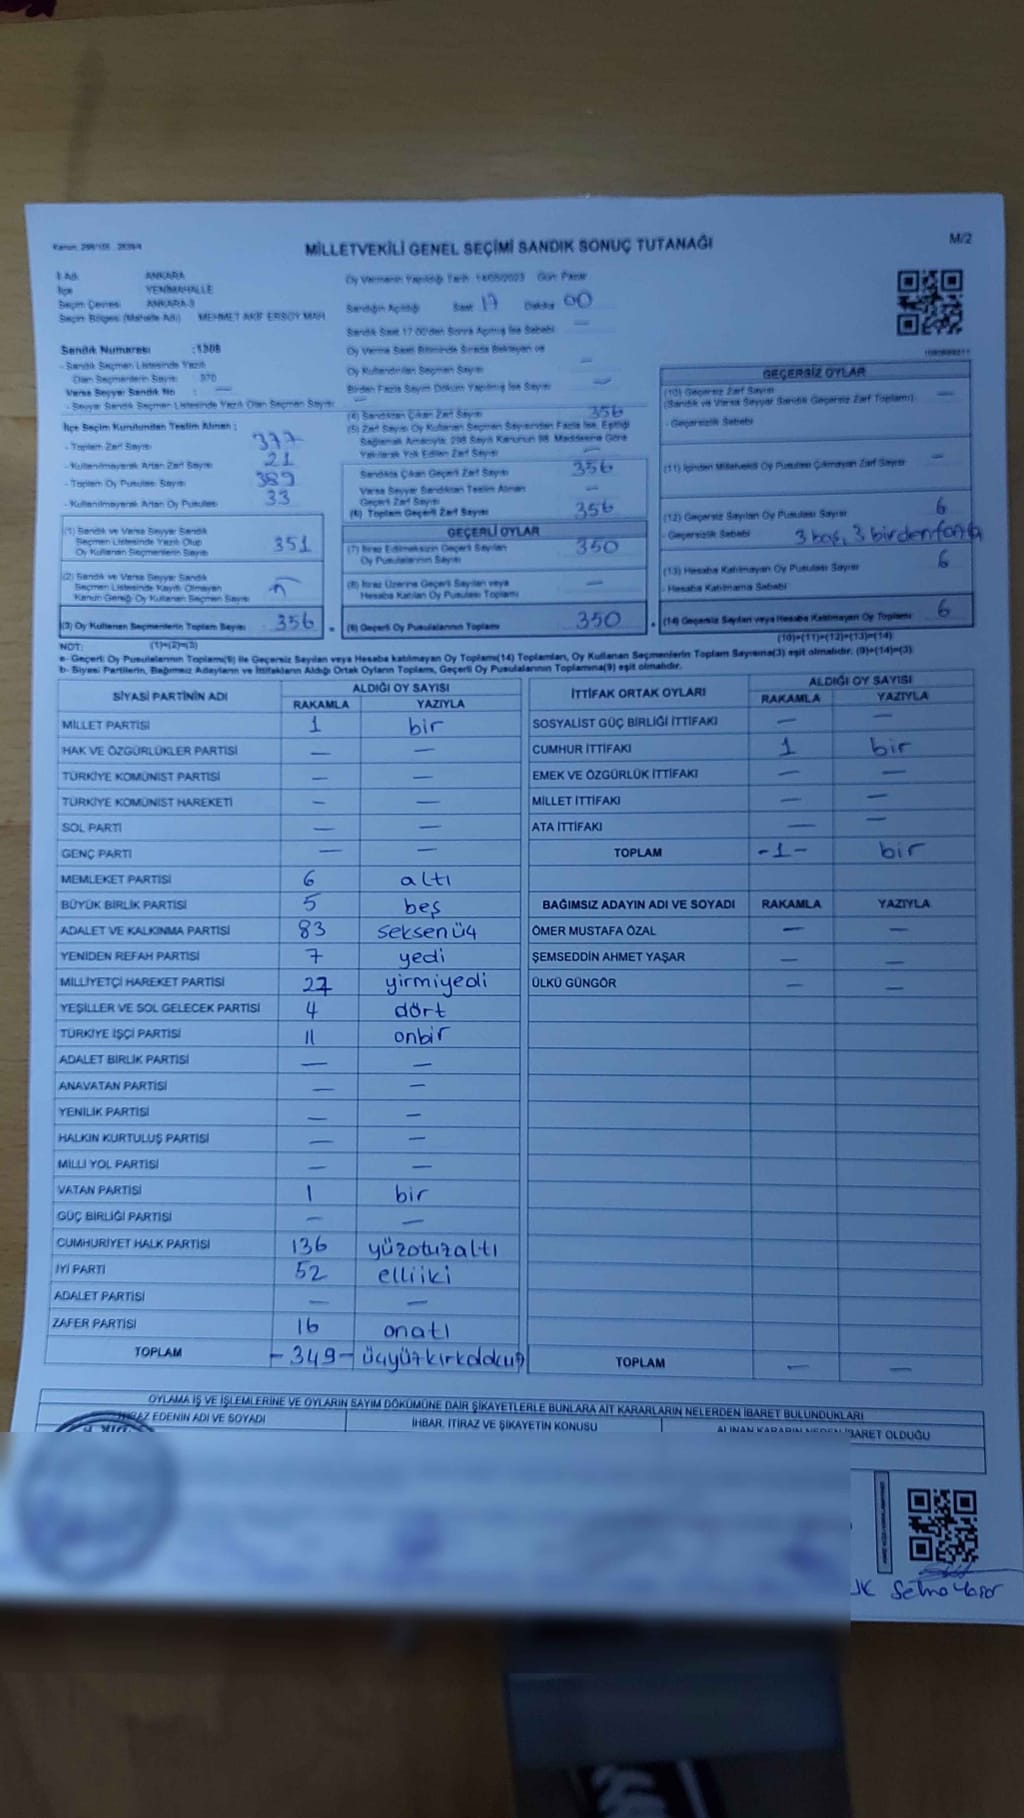 M/2
MİLLETVEKİLİ GENEL SEÇİMİ SANDIK SONUÇ TUTANAĞI
İl Adı ANKARA
İlçe YENİMAHALLE
Seçim Çevresi ANKARA-3
Seçim Bölgesi (Mahalle Adı) MEHMET AKİF ERSOY MAH
Sandık Numarası :1308
- Sandık Seçmen Listesinde Yazılı
Olan Seçmenlerin Sayısı : 370
Varsa Seyyar Sandık No : —
- Seyyar Sandık Seçmen Listesinde Yazılı Olan Seçmen Sayısı :
İlçe Seçim Kurulundan Teslim Alınan :
- Toplam Zarf Sayısı 377
- Kullanılmayarak Artan Zarf Sayısı 21
- Toplam Oy Pusulası Sayısı 389
- Kullanılmayarak Artan Oy Pusulası 33
(1) Sandık ve Varsa Seyyar Sandık
Seçmen Listesinde Yazılı Olup
Oy Kullanan Seçmenlerin Sayısı 351
(2) Sandık ve Varsa Seyyar Sandık
Seçmen Listesinde Kayıtlı Olmayan
Kanun Gereği Oy Kullanan Seçmen Sayısı
(3) Oy Kullanan Seçmenlerin Toplam Sayısı 356
(1)+(2)=(3)
Oy Vermenin Yapıldığı Tarih : 14/05/2023 Gün: Pazar
Sandığın Açıldığı Saat 17 Dakika 00
Sandık Saat 17.00'den Sonra Açılmış İse Sebebi —
Oy Verme Saati Bitiminde Sırada Bekleyen ve
Oy Kullandırılan Seçmen Sayısı —
Birden Fazla Sayım Döküm Yapılmış İse Sayısı —
(4) Sandıktan Çıkan Zarf Sayısı 356
(5) Zarf Sayısı Oy Kullanan Seçmen Sayısından Fazla İse, Eşitliği
Sağlamak Amacıyla 298 Sayılı Kanunun 98. Maddesine Göre
Yakılarak Yok Edilen Zarf Sayısı —
Sandıkta Çıkan Geçerli Zarf Sayısı 356
Varsa Seyyar Sandıktan Teslim Alınan
Geçerli Zarf Sayısı —
(6) Toplam Geçerli Zarf Sayısı 356
GEÇERLİ OYLAR
(7) İtiraz Edilmeksizin Geçerli Sayılan
Oy Pusulasının Sayısı 350
(8) İtiraz Üzerine Geçerli Sayılan veya
Hesaba Katılan Oy Pusulası Toplamı —
(9) Geçerli Oy Pusulalarının Toplamı 350
GEÇERSİZ OYLAR
(10) Geçersiz Zarf Sayısı
(Sandık ve Varsa Seyyar Sandık Geçersiz Zarf Toplamı) —
- Geçersizlik Sebebi
(11) İçinden Milletvekili Oy Pusulası Çıkmayan Zarf Sayısı —
(12) Geçersiz Sayılan Oy Pusulası Sayısı 6
- Geçersizlik Sebebi 3 boş, 3 birden fazla
(13) Hesaba Katılmayan Oy Pusulası Sayısı 6
- Hesaba Katılmama Sebebi
(14) Geçersiz Sayılan veya Hesaba Katılmayan Oy Toplamı 6
(10)+(11)+(12)+(13)=(14)
NOT:
a- Geçerli Oy Pusulalarının Toplamı(9) ile Geçersiz Sayılan veya Hesaba katılmayan Oy Toplamı(14) Toplamları, Oy Kullanan Seçmenlerin Toplam Sayısına(3) eşit olmalıdır. (9)+(14)=(3)
b- Siyasi Partilerin, Bağımsız Adayların ve İttifakların Aldığı Ortak Oyların Toplamı, Geçerli Oy Pusulalarının Toplamına(9) eşit olmalıdır.
SİYASİ PARTİNİN ADI ALDIĞI OY SAYISI
RAKAMLA YAZIYLA
MİLLET PARTİSİ 1 bir
HAK VE ÖZGÜRLÜKLER PARTİSİ — —
TÜRKİYE KOMÜNİST PARTİSİ — —
TÜRKİYE KOMÜNİST HAREKETİ — —
SOL PARTİ — —
GENÇ PARTİ — —
MEMLEKET PARTİSİ 6 altı
BÜYÜK BİRLİK PARTİSİ 5 beş
ADALET VE KALKINMA PARTİSİ 83 seksenüç
YENİDEN REFAH PARTİSİ 7 yedi
MİLLİYETÇİ HAREKET PARTİSİ 27 yirmiyedi
YEŞİLLER VE SOL GELECEK PARTİSİ 4 dört
TÜRKİYE İŞÇİ PARTİSİ 11 onbir
ADALET BİRLİK PARTİSİ — —
ANAVATAN PARTİSİ — —
YENİLİK PARTİSİ — —
HALKIN KURTULUŞ PARTİSİ — —
MİLLİ YOL PARTİSİ — —
VATAN PARTİSİ 1 bir
GÜÇ BİRLİĞİ PARTİSİ — —
CUMHURİYET HALK PARTİSİ 136 yüzotuzaltı
İYİ PARTİ 52 elliiki
ADALET PARTİSİ — —
ZAFER PARTİSİ 16 onatı
TOPLAM -349- üçyüzkırkdokuz
İTTİFAK ORTAK OYLARI ALDIĞI OY SAYISI
RAKAMLA YAZIYLA
SOSYALİST GÜÇ BİRLİĞİ İTTİFAKI — —
CUMHUR İTTİFAKI 1 bir
EMEK VE ÖZGÜRLÜK İTTİFAKI — —
MİLLET İTTİFAKI — —
ATA İTTİFAKI — —
TOPLAM -1- bir
BAĞIMSIZ ADAYIN ADI VE SOYADI RAKAMLA YAZIYLA
ÖMER MUSTAFA ÖZAL — —
ŞEMSEDDİN AHMET YAŞAR — —
ÜLKÜ GÜNGÖR — —
TOPLAM — —
OYLAMA İŞ VE İŞLEMLERİNE VE OYLARIN SAYIM DÖKÜMÜNE DAİR ŞİKAYETLERLE BUNLARA AİT KARARLARIN NELERDEN İBARET BULUNDUKLARI
İTİRAZ EDENİN ADI VE SOYADI İHBAR, İTİRAZ VE ŞİKAYETİN KONUSU ALINAN KARARIN NEDEN İBARET OLDUĞU